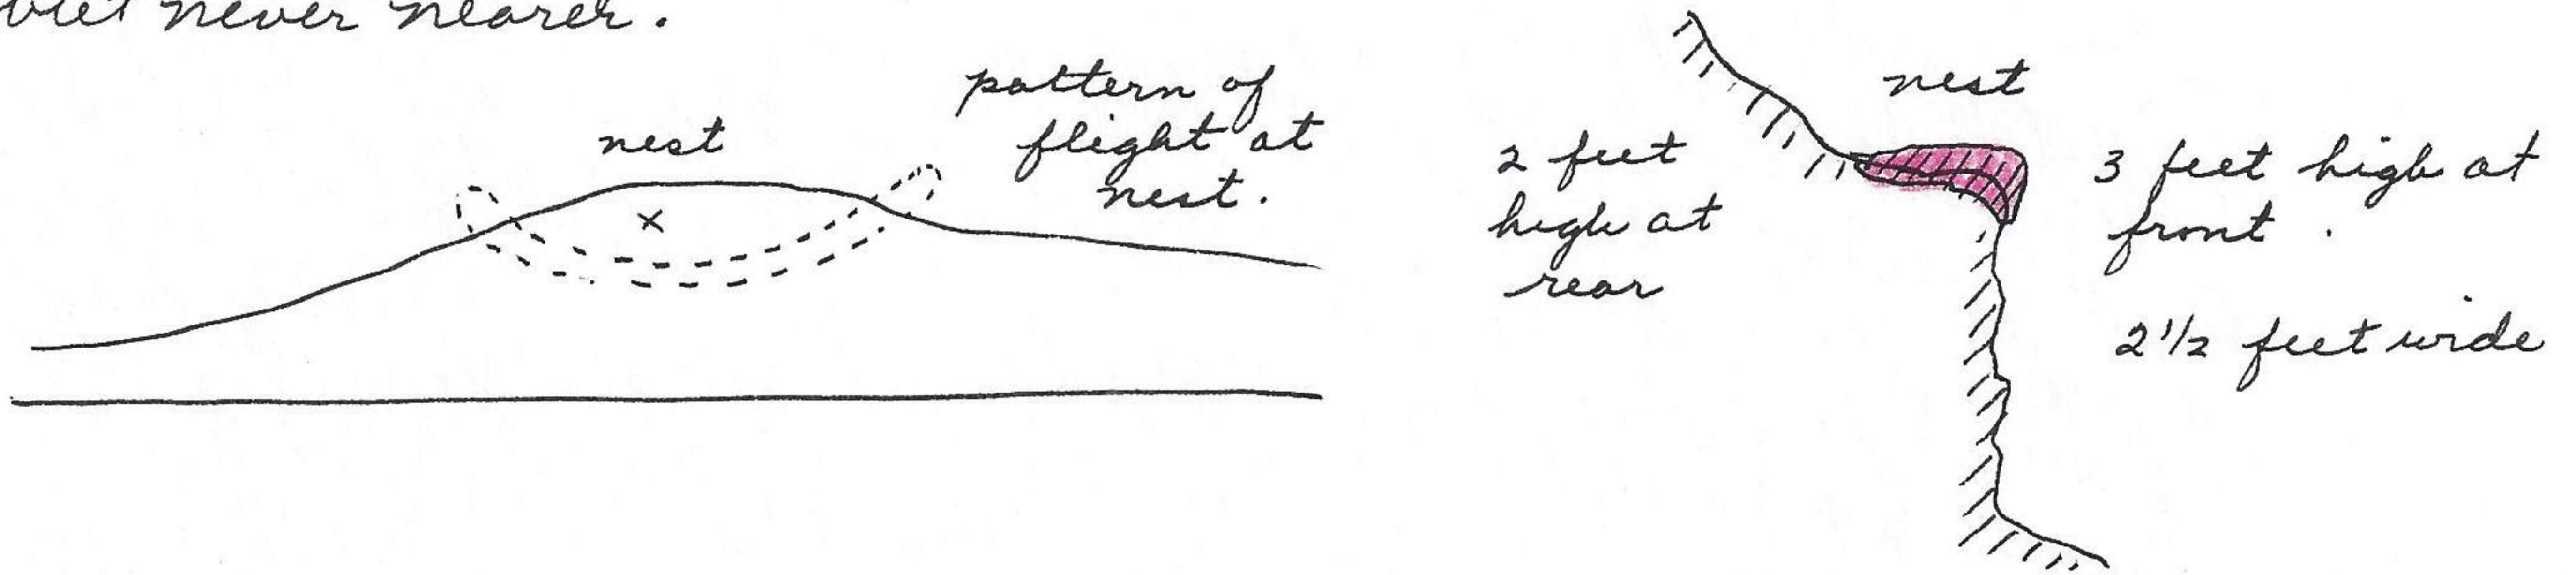 but never nearer.
nest
pattern of
flight at
nest.
x
nest
2 feet
high at
rear
3 feet high at
front.
2 1/2 feet wide